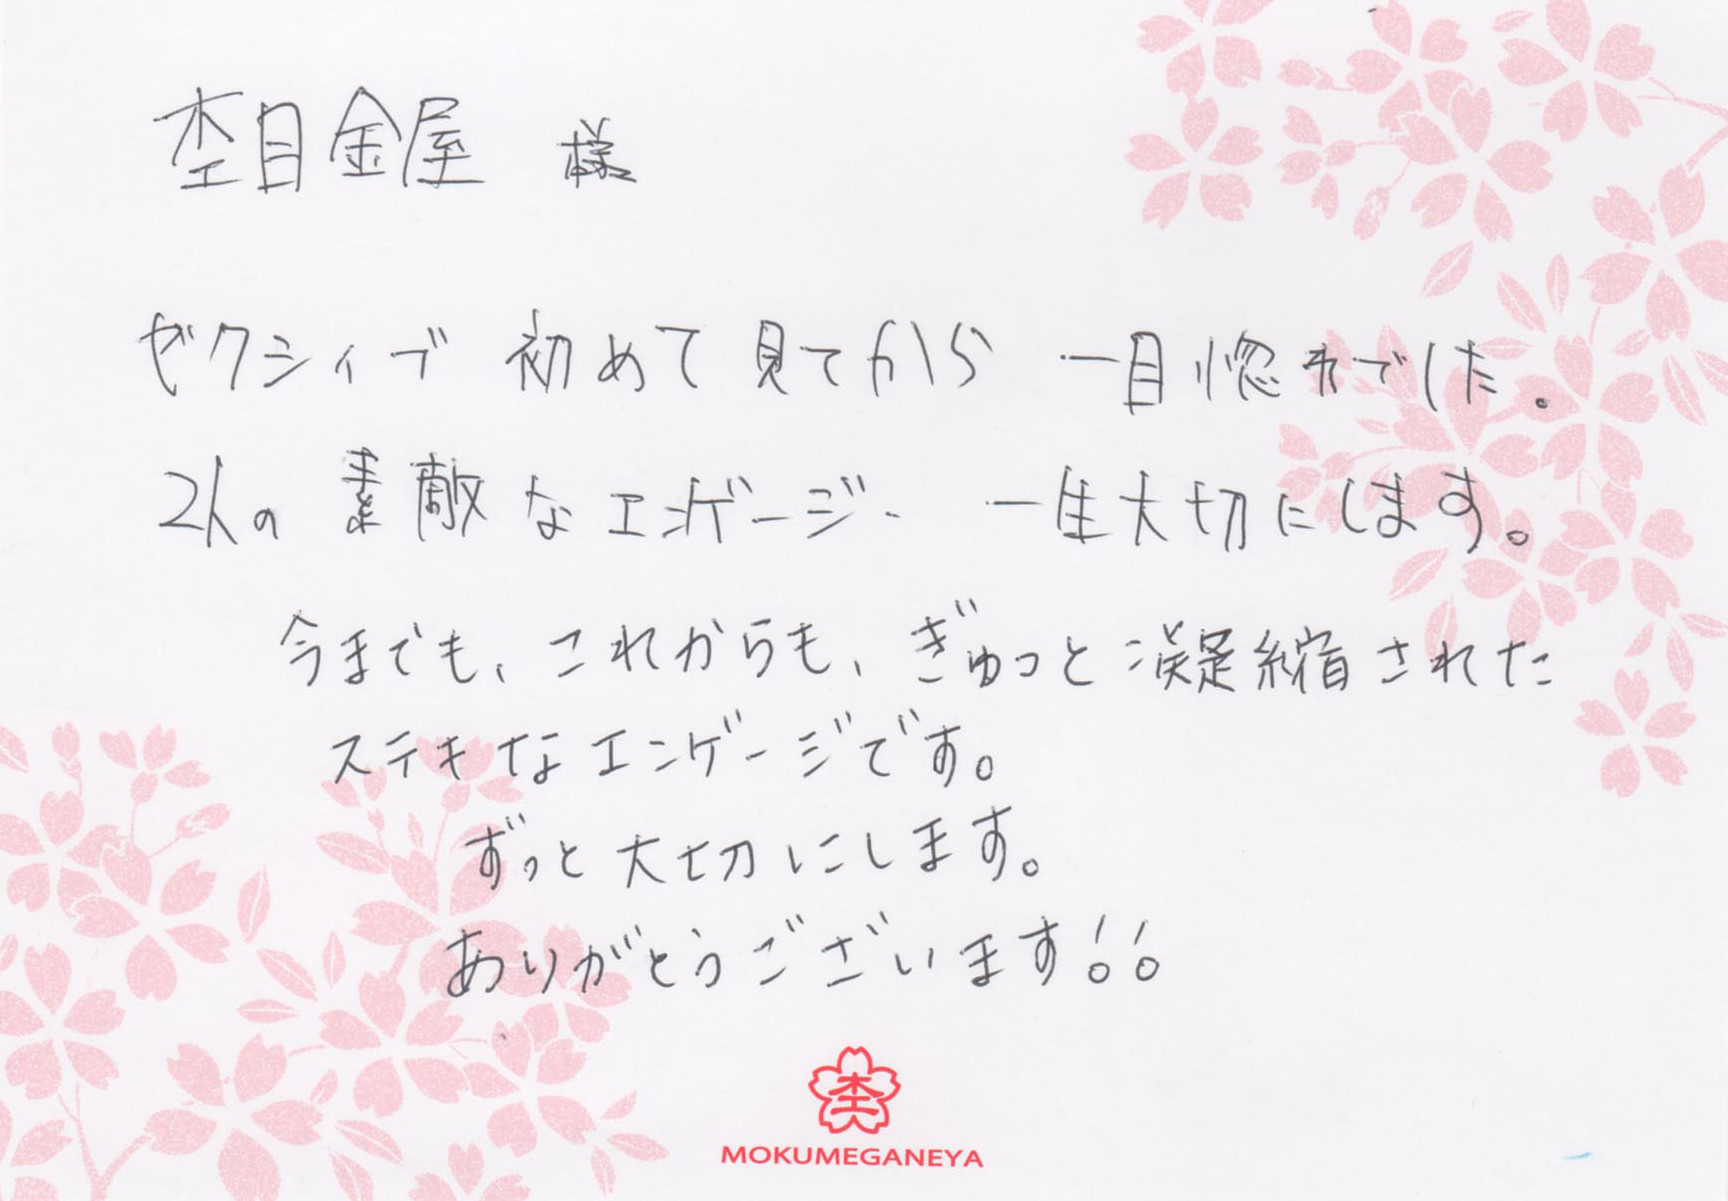 杢目金屋 様
ゼクシィブ 初めて見てから 一目惚れでした。
2人の 素敵なエンゲージ 一生大切にします。
今までも、これからも、ぎゅっと凝縮された
ステキなエンゲージです。
ずっと大切にします。
ありがとうございます!!
杢
MOKUMEGANEYA